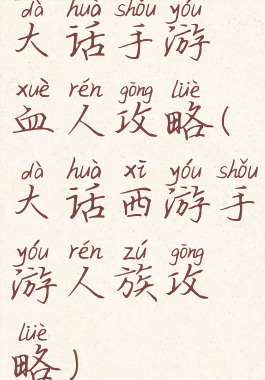 dà huà shǒu yóu
大话手游
xuè rén gōng lüè
血人攻略(
dà huà xī yóu shǒu
大话西游手
yóu rén zú gōng
游人族攻
lüè
略)